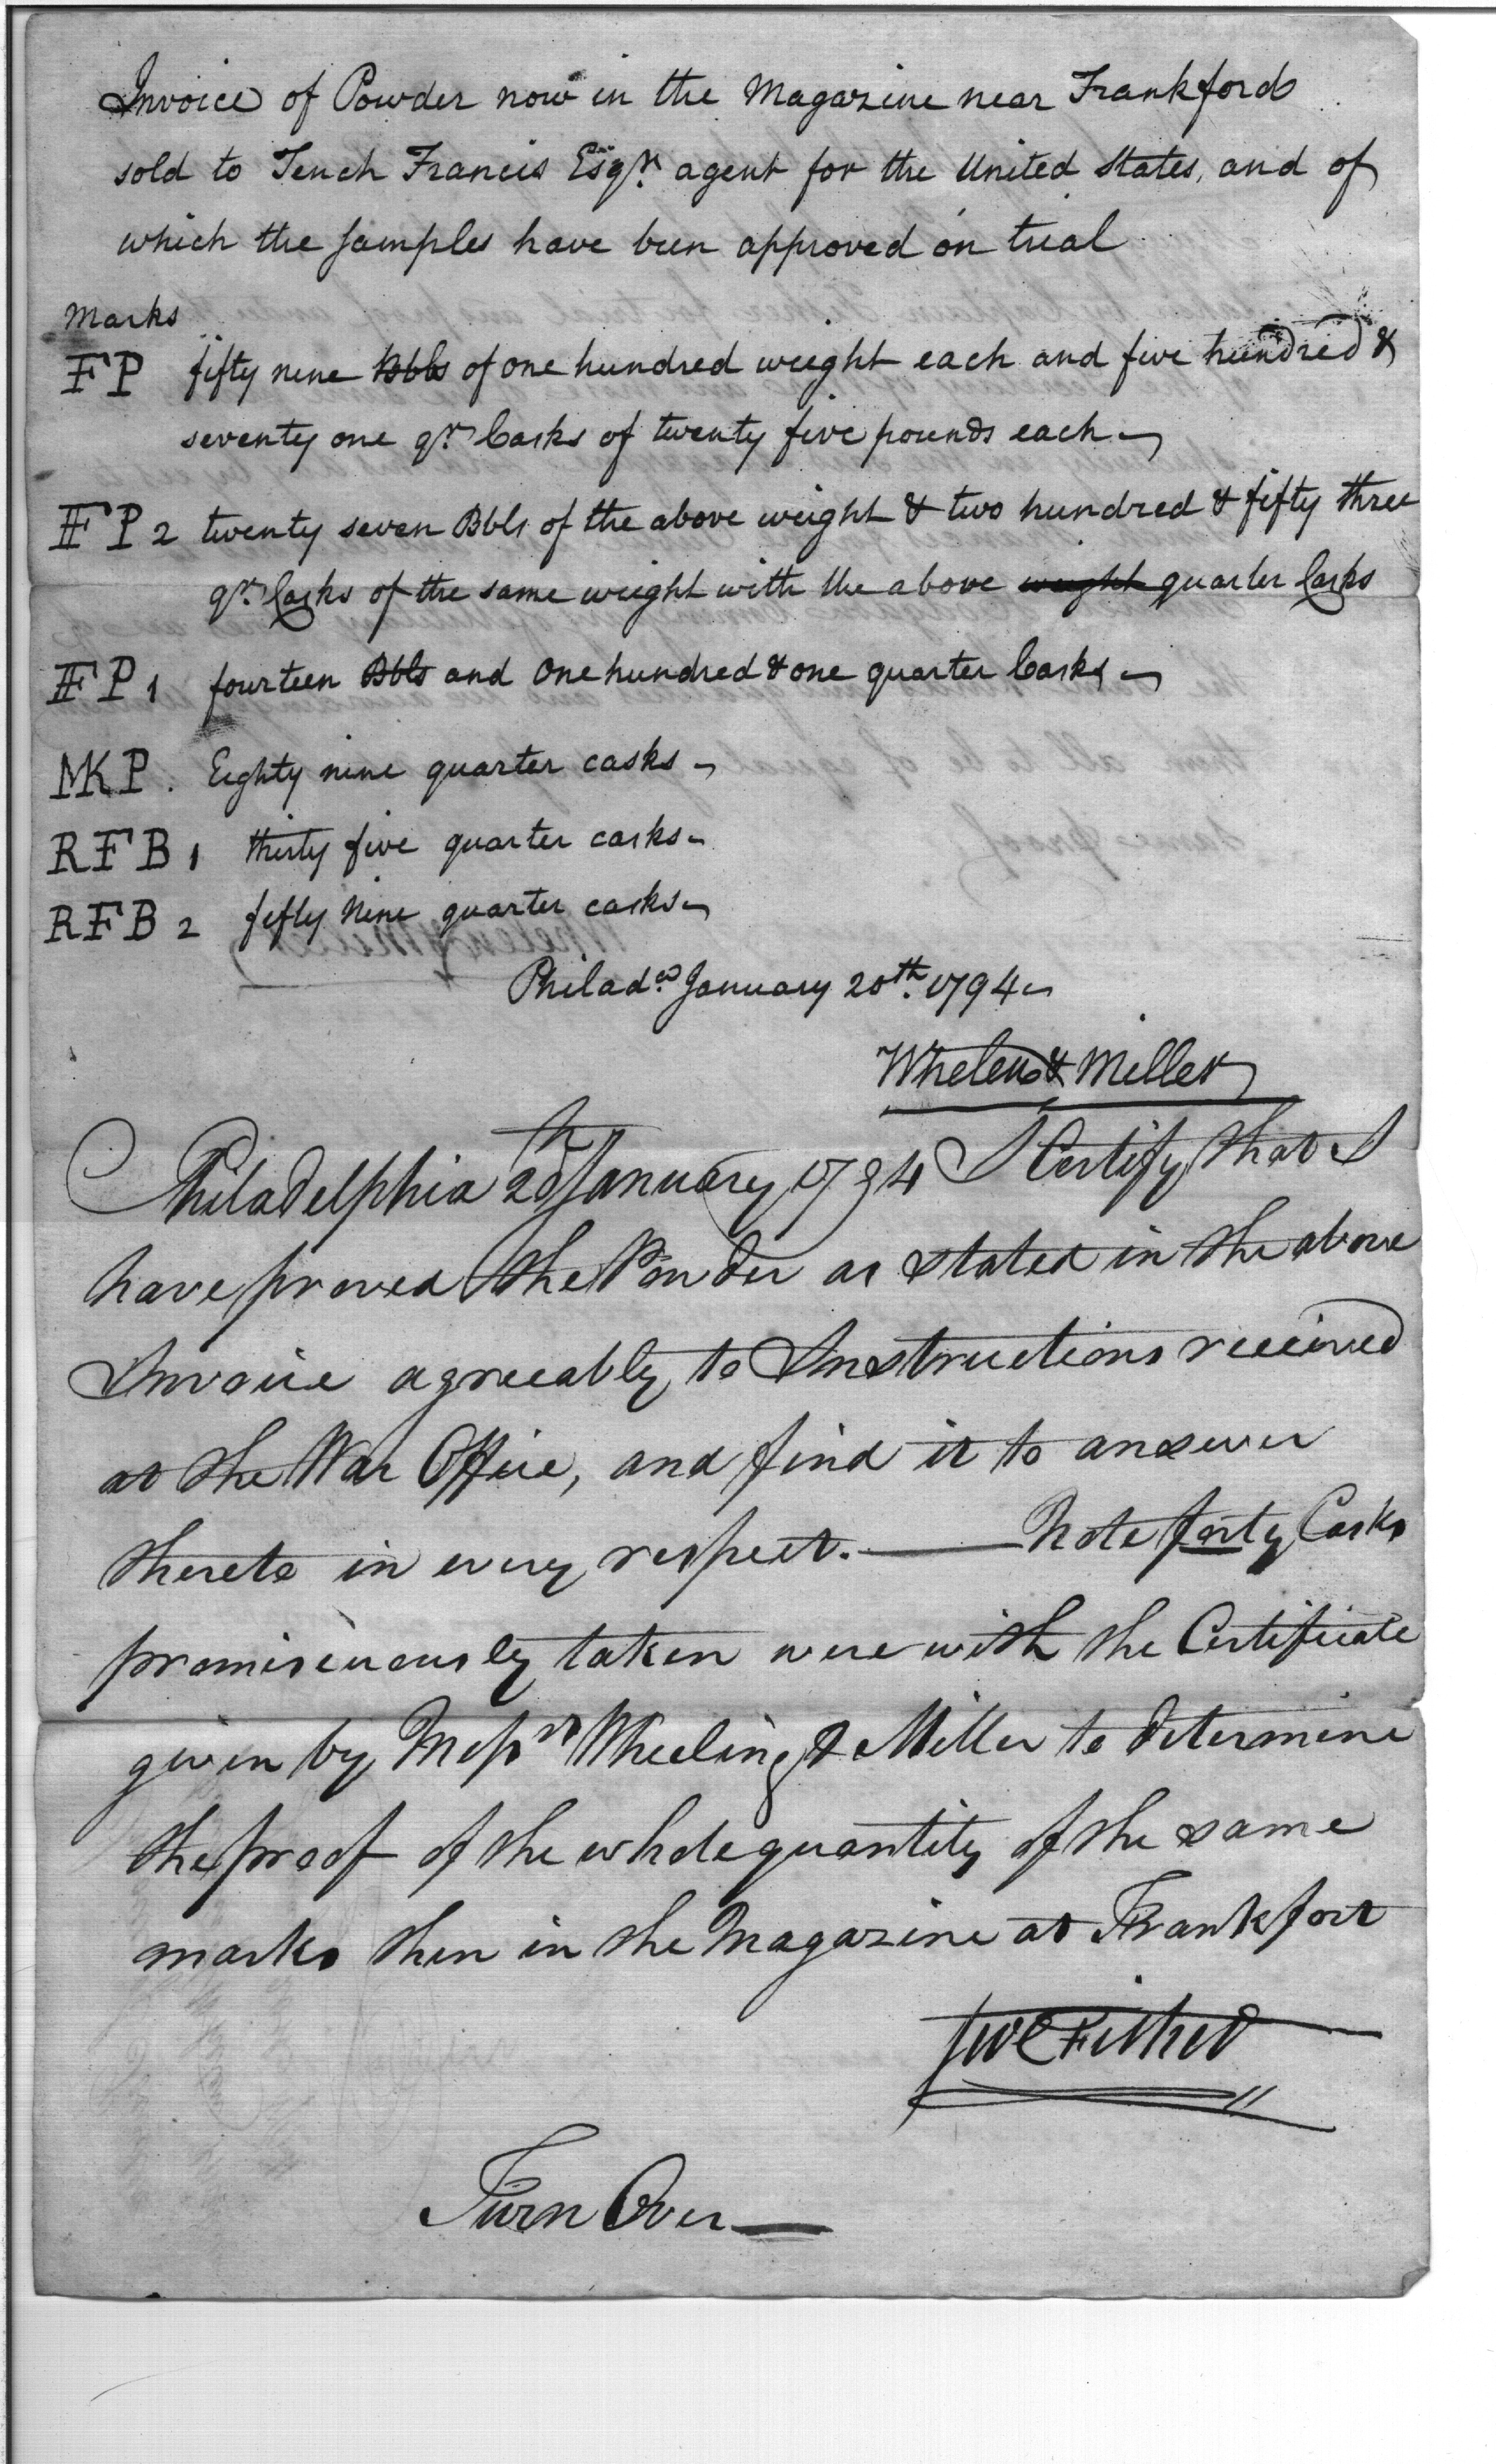 Invoice of Powder now in the Magazine near Frankford
sold to Tench Francis Esqr. agent for the United States, and of
which the samples have been approved on trial
Marks
FP fifty nine Bbls of one hundred weight each and five hundred &
seventy one qr. Casks of twenty five pounds each
FFP 2 twenty seven Bbls of the above weight & two hundred & fifty three
qr. Casks of the same weight with the above weight quarter Casks
FFP 1 fourteen Bbls and One hundred & one quarter Casks
MKP. Eighty nine quarter casks
RFB 1 thirty five quarter casks
RFB 2 fifty Nine quarter casks
Philada. January 20th. 1794
Whelen & Miller
Philadelphia 20th January 1794 I Certify that I
have proved the Powder as stated in the above
Invoice agreeably to Instructions received
at the War Office, and find it to answer
thereto in every respect. Note forty Casks
promiscuously taken were with the Certificate
given by Messrs Wheeling & Miller to determine
the proof of the whole quantity of the same
marks then in the Magazine at Frankfort
Fisher
Turn Over